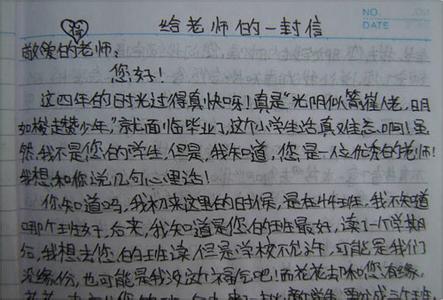 NO.
DATE
给老师的一封信
敬爱的老师:
您好!
这四年的时光过得真快呀!真是“光阴似箭催人老,日月
如梭趱少年,”就面临毕业了,这个小学生活真难忘啊!虽
然,我不是您的学生,但是,我知道,您是一位优秀的老师!
我想,和你说几句心里话!
你知道吗,我初来这里的时候,是在4年班,我不知道
哪个班好,后来,我知道是您的班最好,读了一个学期
后,我想去您的班读,但是学校不允许,可能是我们
没缘份,也可能是我没这个福气吧!而花花去你和您有缘,